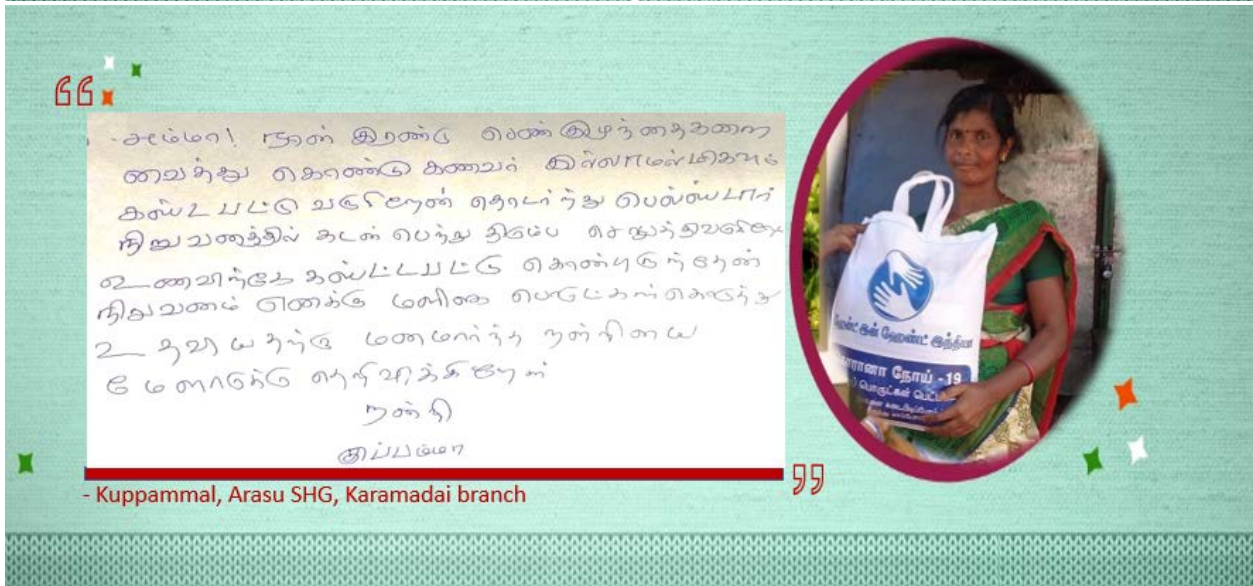 அம்மா! நான் இரண்டு பெண் குழந்தைகளை
வைத்து கொண்டு கணவர் இல்லாமல் மிகவும்
கஸ்டபட்டு வருகிறேன் தொடர்ந்து பெல்ஸ்டார்
நிறுவனத்தில் கடன் பெற்று திரும்ப செலுத்திவருகிறேன்
உணவிற்கே கஸ்ட்டபட்டு கொண்டிருந்தேன்
நிறுவனம் எனக்கு மளிகை பொருட்கள் கொடுத்து
உதவியதற்கு மனமார்ந்த நன்றியை
மேளாருக்கு தெரிவிக்கிறேன்
நன்றி
குப்பம்மா
- Kuppammal, Arasu SHG, Karamadai branch
ஹேண்ட் இன் ஹேண்ட் இந்தியா
கொரானா நோய் - 19
பொருட்கள்